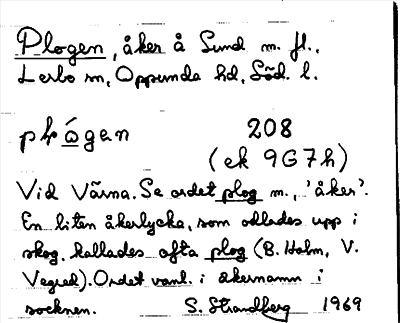 Plogen, åker å Sund m. fl.,
Lerbo sn, Oppunda hd, Söd. l.
plågen 208
(ek 9G7h)
Vid Värna. Se ordet plog m., 'åker'.
En liten åkerlycka, som odlades upp i
skog, kallades ofta plog (B. Holm, V.
Vegred). Ordet vanl. i åkernamn i
socknen. S. Strandberg 1969